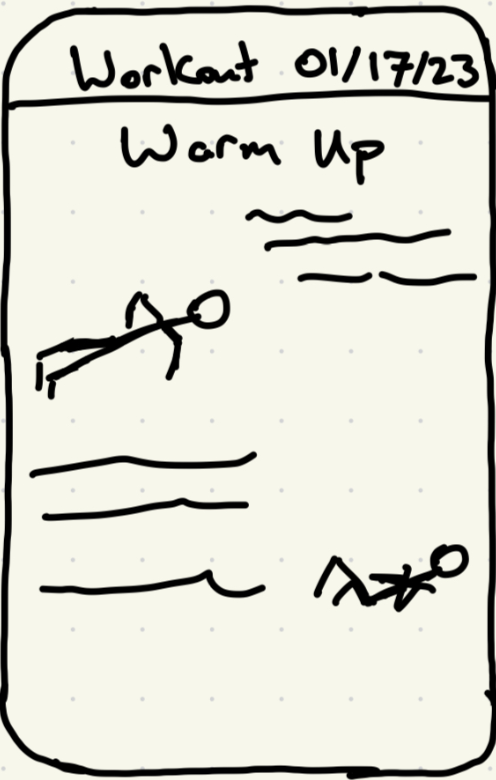 Workout 01/17/23
Warm Up